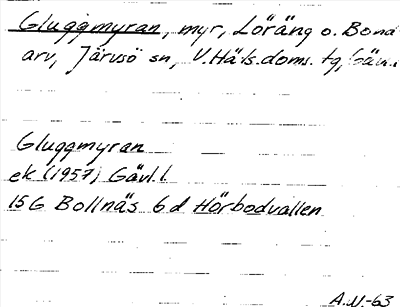 Gluggmyran, myr, Löräng o. Bond
arv, Järvsö sn, V.Häls.doms. tg, Gäv.
Gluggmyran
ek (1957) Gävl.l.
15G Bollnäs 6d Hörbodvallen
A.N.-63